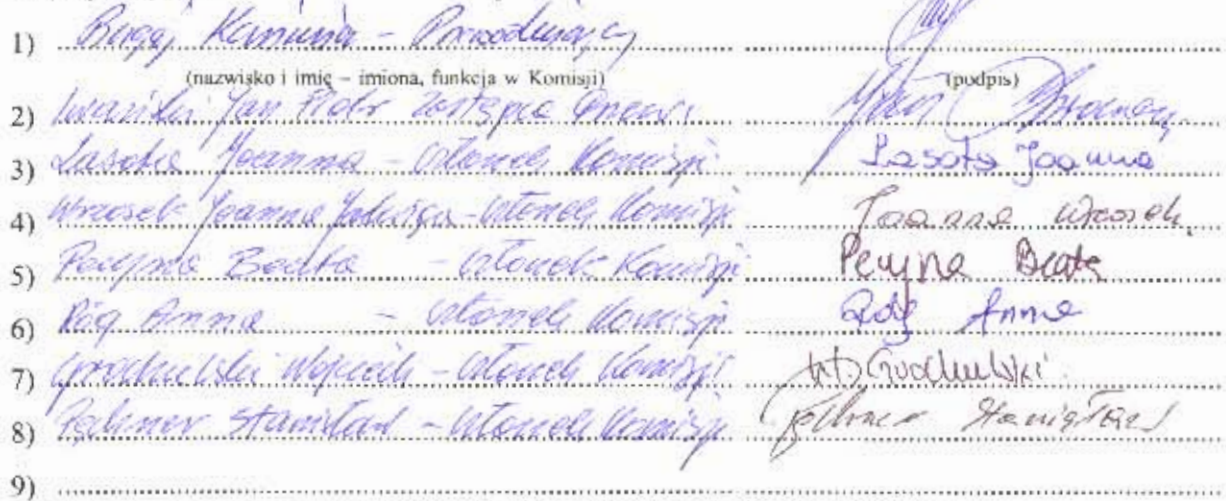 1) Bugaj Kamina - Przewodniczący
(nazwisko i imię – imiona, funkcja w Komisji) (podpis)
2) Iwański Jan Piotr Zastępca
3) Lasota Joanna - Członek Komisji Lasota Joanna
4) Wrzosek Joanna Jadwiga - Członek Komisji Joanna Wrzosek
5) Pecyna Beata - Członek Komisji Pecyna Beata
6) Róg Anna - Członek Komisji Róg Anna
7) Grochulski Wojciech - Członek Komisji W Grochulski
8) Stanisław - Członek Komisji Stanisław
9)